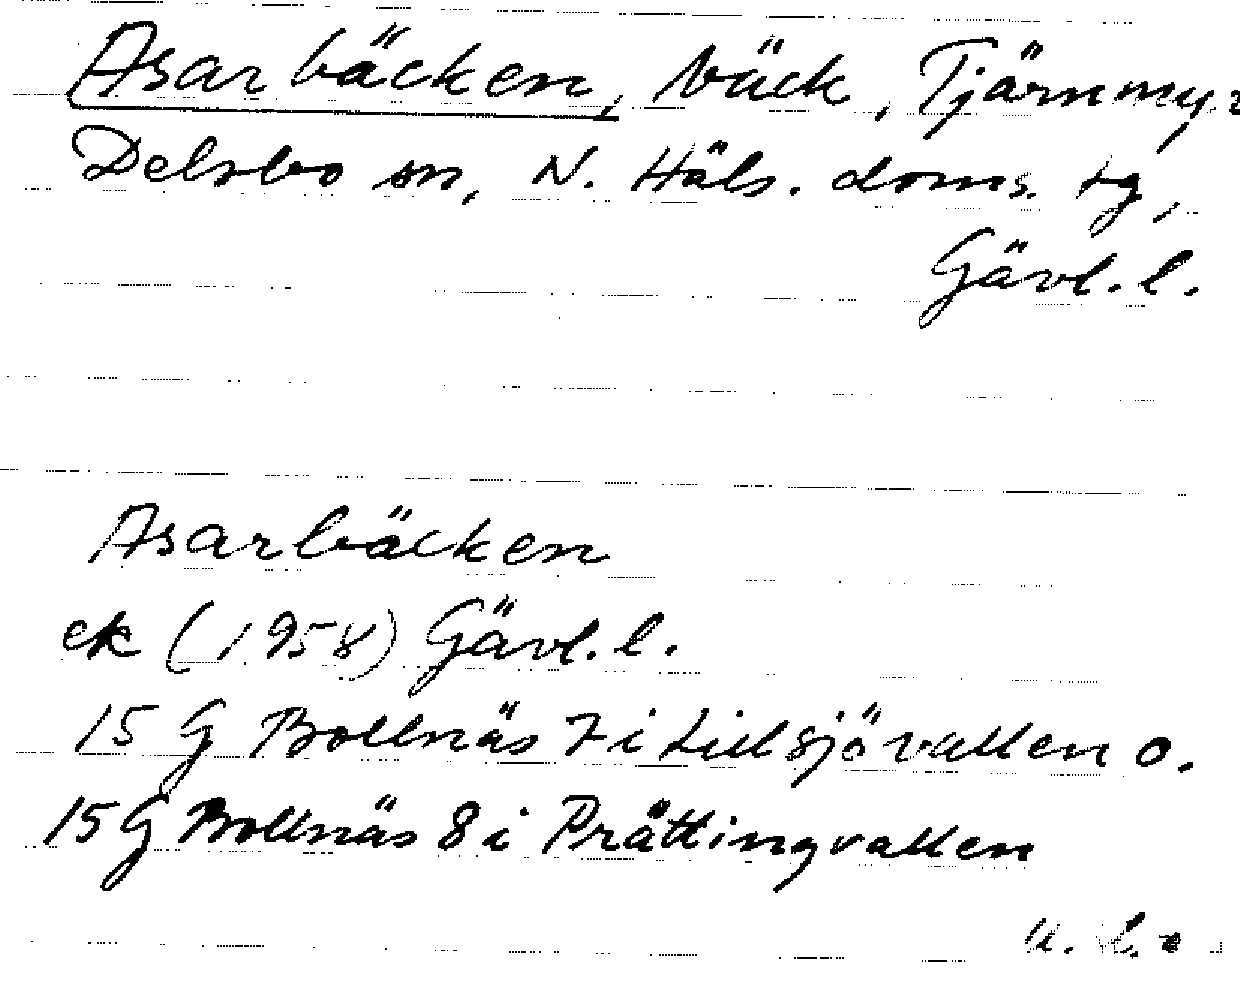 Asarbäcken, bäck, Tjärnmyr
Delsbo sn, N. Häls. doms. tg,
Gävl. l.
Asarbäcken
ek (1958) Gävl. l.
15 G Bollnäs 7 i Lillsjövallen o.
15 G Bollnäs 8 i Prättingvallen